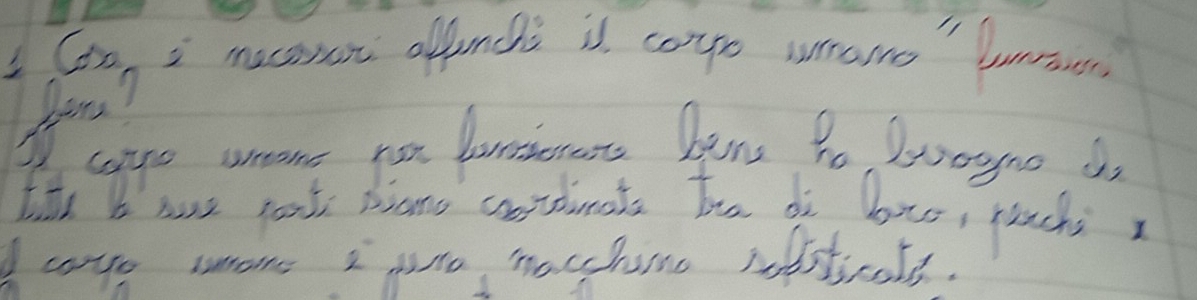 1 Cosa è necessari affinché il corpo umano "funzioni
bene?
Il corpo umano per funzionare bene ha bisogno che
tutte le sue parti siano coordinate tra di loro, perché
il corpo umano è una macchina sofisticata.